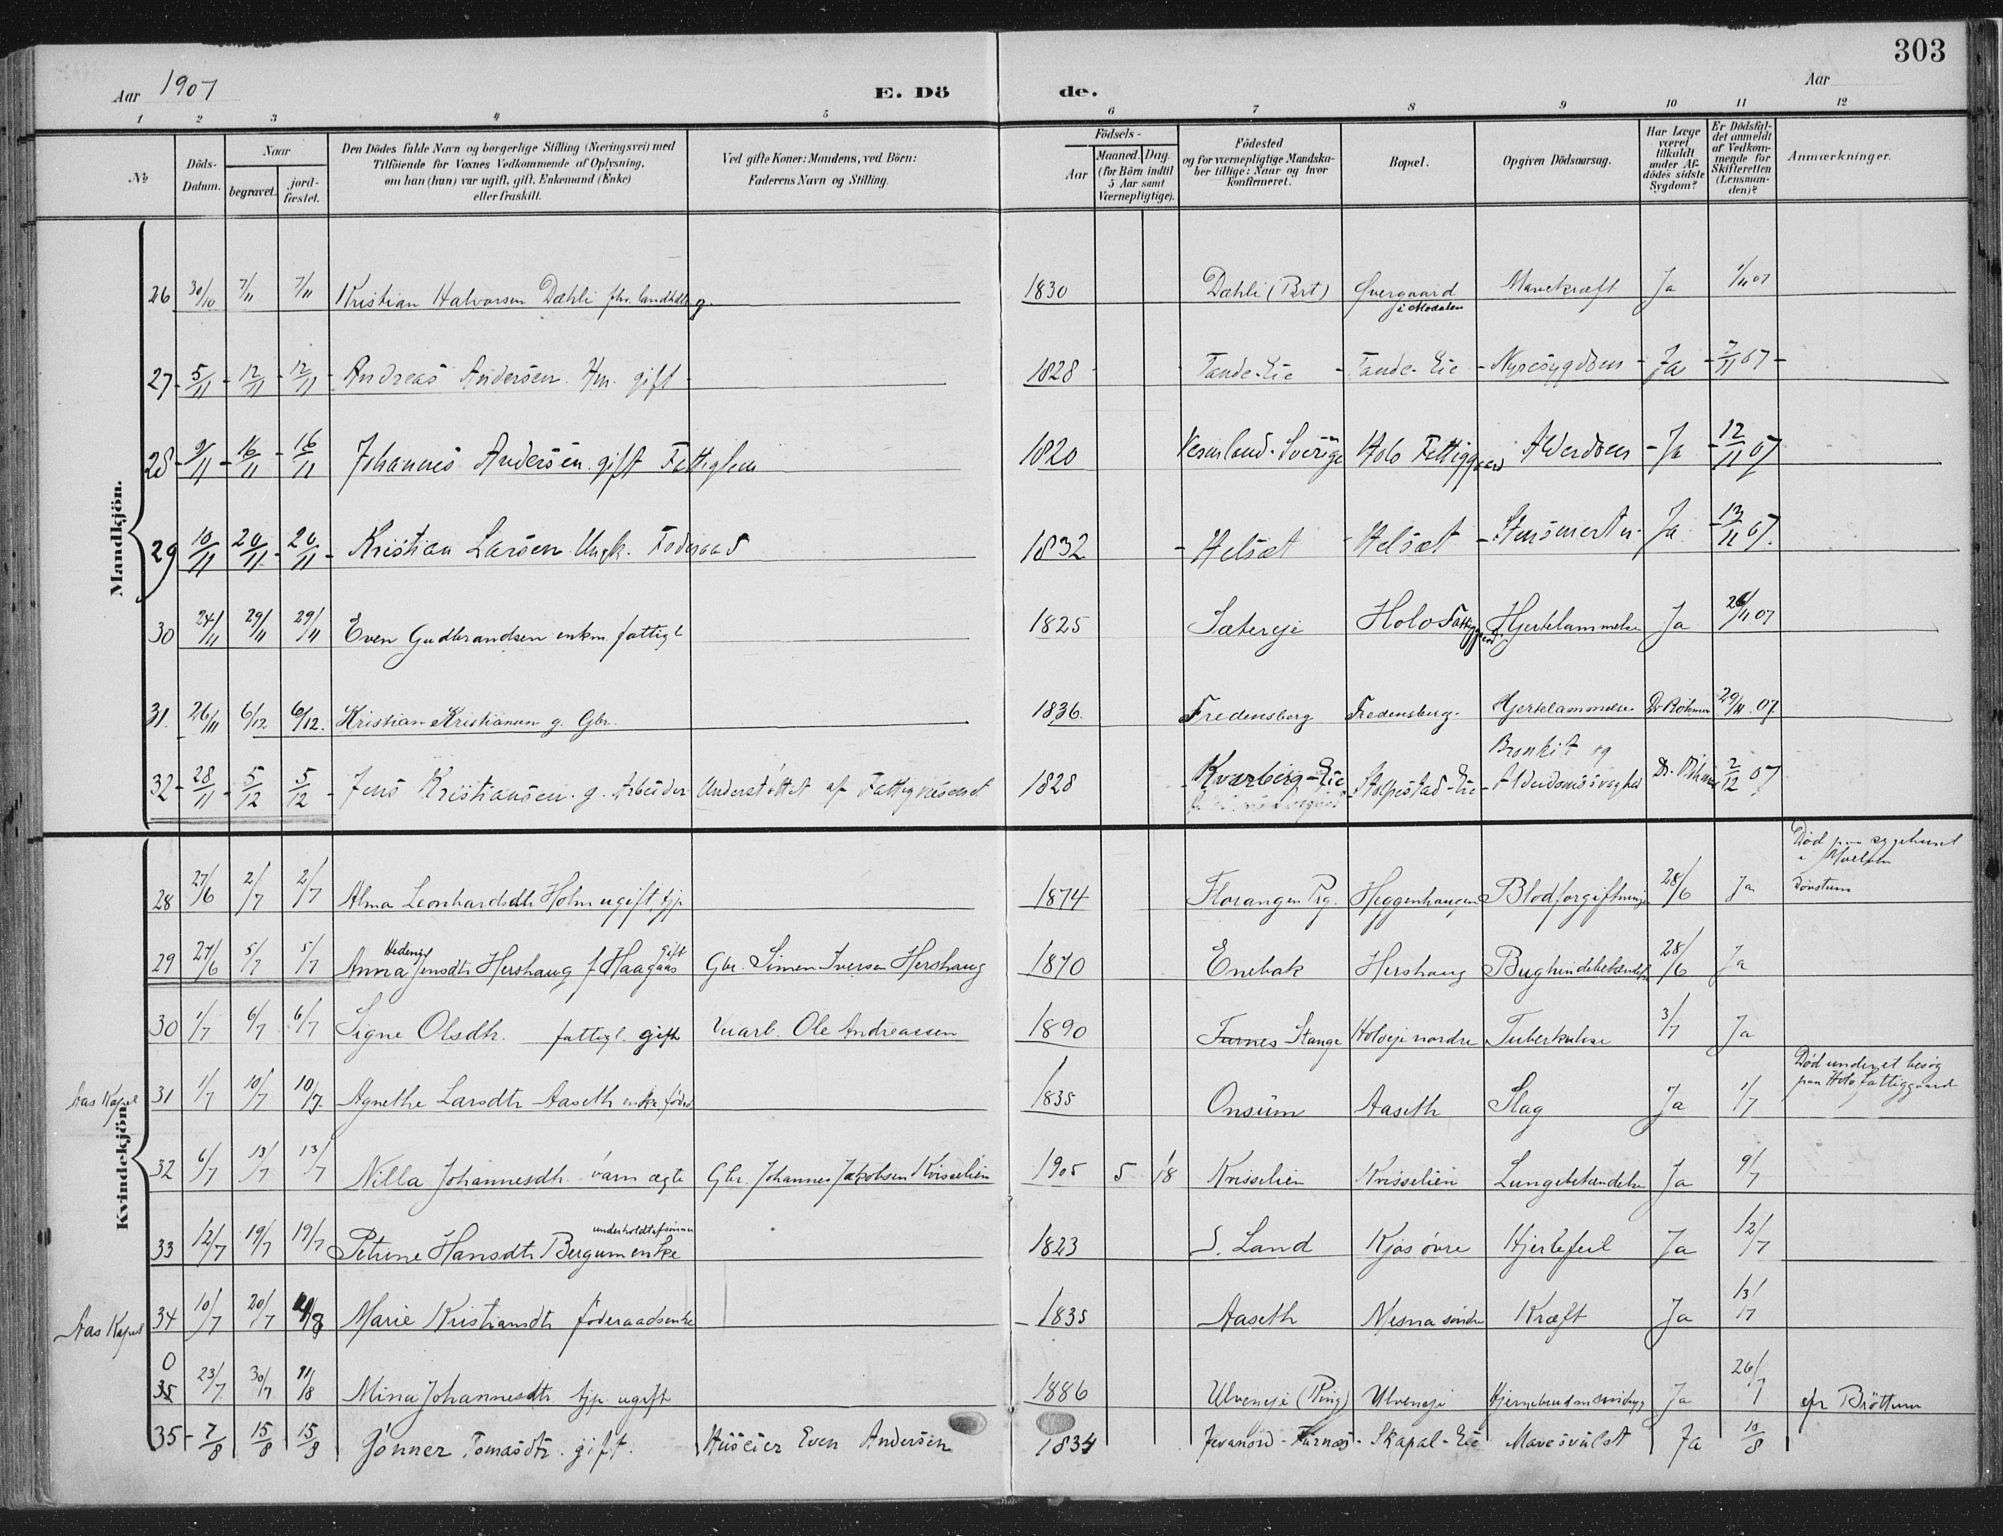 303
Aar 1907
E. Dö de.
Aar
1 2 3 4 5 6 7 8 9 10 11 12
№
Döds-Datum.
Naar
begravet.
jord-fæstet.
Den Dödes fulde Navn og borgerlige Stilling (Næringsvei) med
Tilföiende for Voxnes Vedkommende af Oplysning,
om han (hun) var ugift, gift, Enkemand (Enke)
eller fraskilt.
Ved gifte Koner: Mandens, ved Börn:
Faderens Navn og Stilling.
Födsels-
Aar
Maaned. Dag.
(for Börn indtil
5 Aar samt
Værnepligtige).
Födested
og for værnepligtige Mandska-
ber tillige: Naar og hvor
konfirmeret.
Bopæl.
Opgiven Dödsaarsag.
Har Læge
været
tilkaldt
under Af-
dödes sidste
Sygdom?
Er Dödsfal-
det anmeldt
af Vedkom-
mende for
Skifteretten
(Lensman-
den)?
Anmærkninger.
Mandkjön.
26 30/10 7/11 7/11 Kristian Halvorsen Dæhli fhv. landhdl. g. 1830 Dæhli (Brt) Øvergaard i Modalen Mavekræft Ja 1/11 07
27 5/11 12/11 12/11 Andreas Andersen Hm. gift 1828 Tande-Eie Tande-Eie Nyresygdom Ja 7/11 07
28 9/11 16/11 16/11 Johannes Andersen gift Fattiglem 1820 Vermland Sverige Holo Fattiggaard Alderdom Ja 12/11 07
29 10/11 20/11 20/11 Kristian Larsen Ungk. Foderaad 1832 Helsæt Helsæt Ja 13/11 07
30 24/11 29/11 29/11 Even Gudbrandsen enkm fattigl 1825 Sætereje Holo Fattiggaard Hjertelammelse Ja 26/11 07
31. 26/11 6/12 6/12. Kristian Kristiansen g. Gbr. 1836 Fredensborg Fredensborg Hjertelammelse Dr 29/11 07
32 28/11 5/12 5/12 Jens Kristiansen g. Arbeider Understöttet af Fattigvæsenet 1828 Kværberg-Eie Stolpestad-Eie Bronkit og Alderdomssvaghed Dr. 2/12 07
Kvindekjön.
28 27/6 2/7 2/7 Alma Leonhardsdtr Holm ugift tjp 1874 Florangen Rg. Heggenhaugen Blodforgiftning 28/6 Ja Död paa sygehuset i Moelven
29 27/6 5/7 5/7 Anna Hedevig Jensdtr Hershaug f. Haagaas gift Gbr. Simen Iversen Hershaug 1870 Enebak Hershaug Bughindebetændelse 28/6 Ja
30 1/7 6/7 6/7 Signe Olsdtr. fattigl. gift Vuarb. Ole Andreassen 1890 Furnes Stange Holoeje nordre Tuberkulose 3/7 Ja
Aas Kapel 31 1/7 10/7 10/7 Agnethe Larsdtr Aaseth enke föderd 1835 Onsüm Aaseth Slag Ja 1/7 Död under et besög paa Holo fattiggaard
32 6/7 13/7 13/7 Nilla Johannesdtr. barn ægte Gbr. Johannes Jakobsen Krisselien 1905 5 18 Krisselien Krisselien Lungebetændelse Ja 9/7
33 12/7 19/7 19/7 Petrine Hansdtr Bergum enke underholdt af sönnen 1823 S. Land Kjos övre Hjertefeil Ja 12/7
Aas Kapel 34 10/7 20/7 Marie Kristiansdtr föderaadsenke 1835 Aaseth Mesna söndre Kræft Ja 13/7
0
35 23/7. 30/7 11/8 Mina Johannesdtr tjp. ugift 1886 Ulveneje (Ring) Ulveneje Ja 26/7 efr Bröttum
35 7/8 15/8 15/8 Gönner Tomasdtr. gift. Huseier Even Andersen 1834 Furnæs Skapal-Eie Mavesvulst Ja 10/8